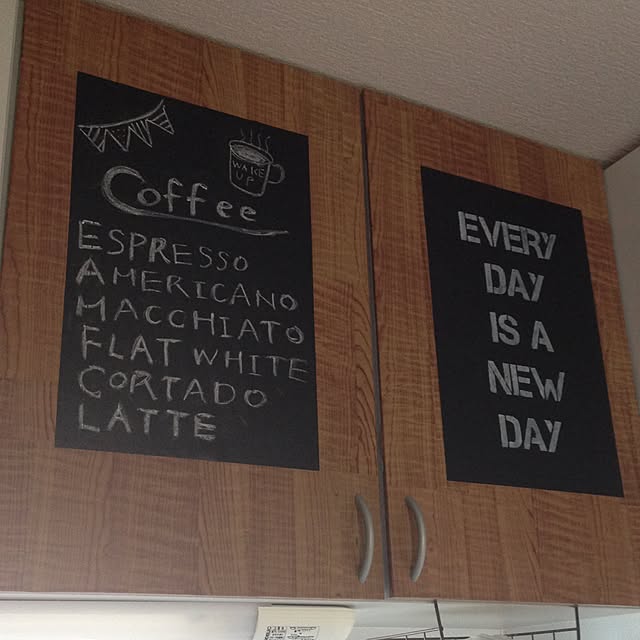 WAKE
UP
Coffee
ESPRESSO
AMERICANO
MACCHIATO
FLAT WHITE
CORTADO
LATTE
EVERY
DAY
IS A
NEW
DAY